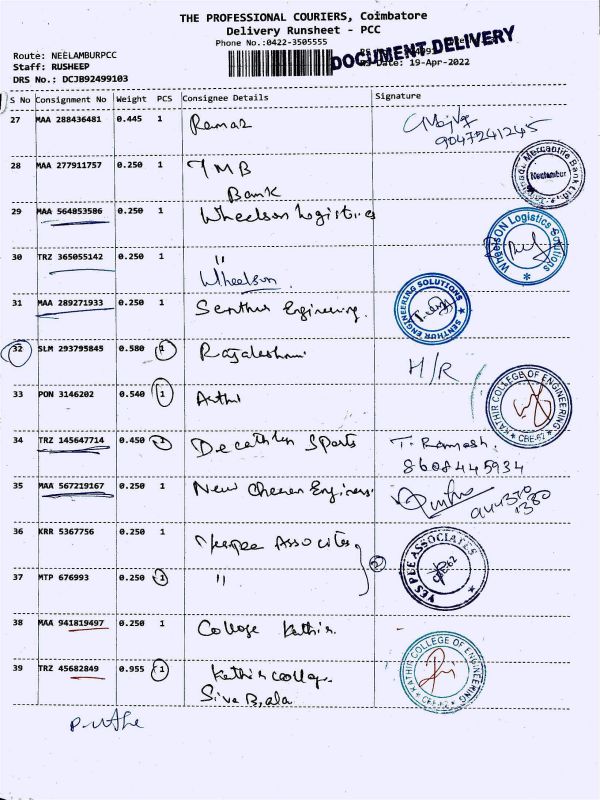 THE PROFESSIONAL COURIERS, Coimbatore
Delivery Runsheet - PCC
Phone No.:0422-3505555
DOCUMENT DELIVERY
Route: NEELAMBURPCC
Staff: RUSHEEP
Date: 19-Apr-2022
DRS No.: DCJB92499103
S No Consignment No Weight PCS Consignee Details Signature
27 MAA 288436481 0.445 1 Ramaz
9047241245
28 MAA 277911757 0.250 1 TMB
Bank
Mercantile Bank Ltd
Neelambur
29 MAA 564853586 0.250 1 Wheelson Logistics
WheelsON Logistics Solutions
30 TRZ 365055142 0.250 1 "
Wheelson
31 MAA 289271933 0.250 1 Senthur Engineering.
SENTHUR ENGINEERING SOLUTIONS
32 SLM 293795845 0.580 1 Rajaleshmi
H/R
33 PON 3146202 0.540 1 Arthi
KATHIR COLLEGE OF ENGINEERING
CBE-62
34 TRZ 145647714 0.450 1 Decathlon Sports T. Ramesh.
8608445934
35 MAA 567219167 0.250 1 New Engineers
36 KRR 5367756 0.250 1 Yespee Associates
YES PEE ASSOCIATES
CBE-62
37 MTP 676993 0.250 1 " 2
38 MAA 941819497 0.250 1 College Kathir.
KATHIR COLLEGE OF ENGINEERING
CBE-62
39 TRZ 45682849 0.955 1 Kathir college.
Siva Bala